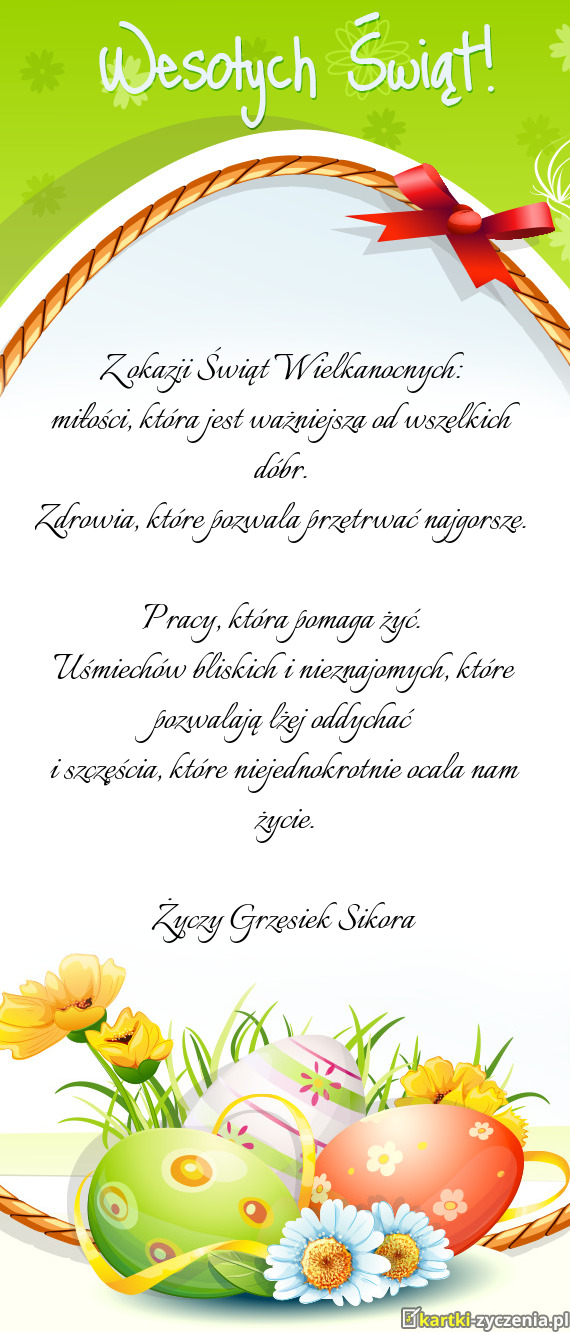 Wesołych Świąt!
Z okazji Świąt Wielkanocnych:
miłości, która jest ważniejsza od wszelkich
dóbr.
Zdrowia, które pozwala przetrwać najgorsze.
Pracy, która pomaga żyć.
Uśmiechów bliskich i nieznajomych, które
pozwalają lżej oddychać
i szczęścia, które niejednokrotnie ocala nam
życie.
Życzy Grzesiek Sikora
kartki-zyczenia.pl